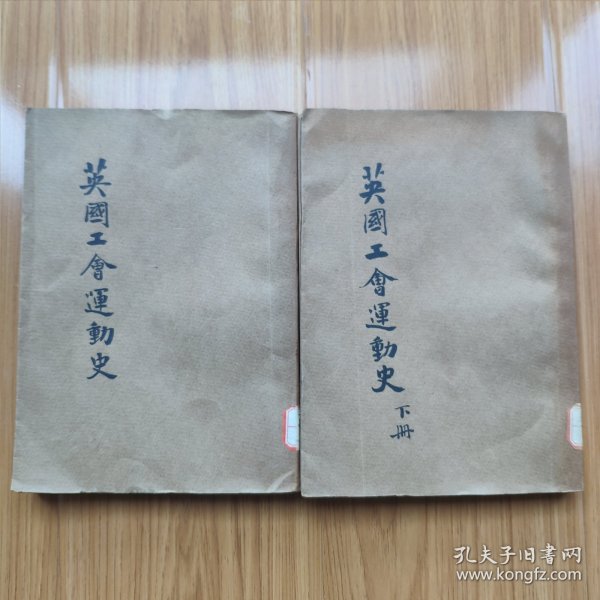 英國工會運動史
英國工會運動史
下冊
孔夫子旧书网
www.kongfz.com